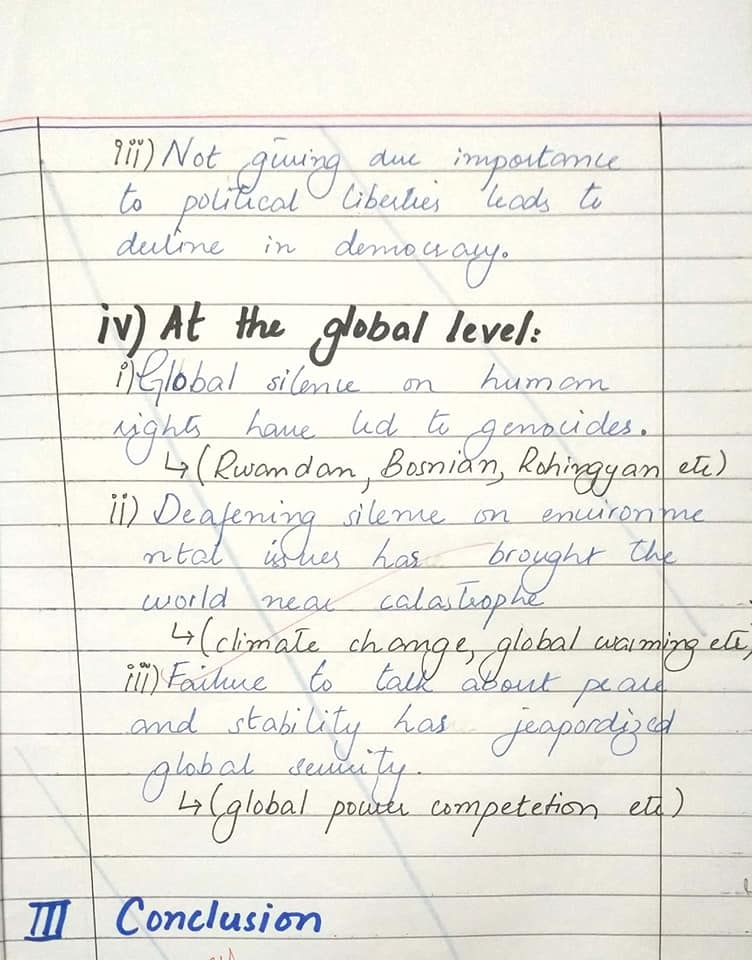 iii) Not giving due importance
to political liberties leads to
decline in democracy.
iv) At the global level:
i) Global silence on human
rights have led to genocides.
↳ (Rwandan, Bosnian, Rohingyan etc)
ii) Deafening silence on environme
ntal issues has brought the
world near catastrophe
↳ (climate change, global warming etc,
iii) Failure to talk about peace
and stability has jeapordized
global security.
↳ (global power competetion etc)
III Conclusion